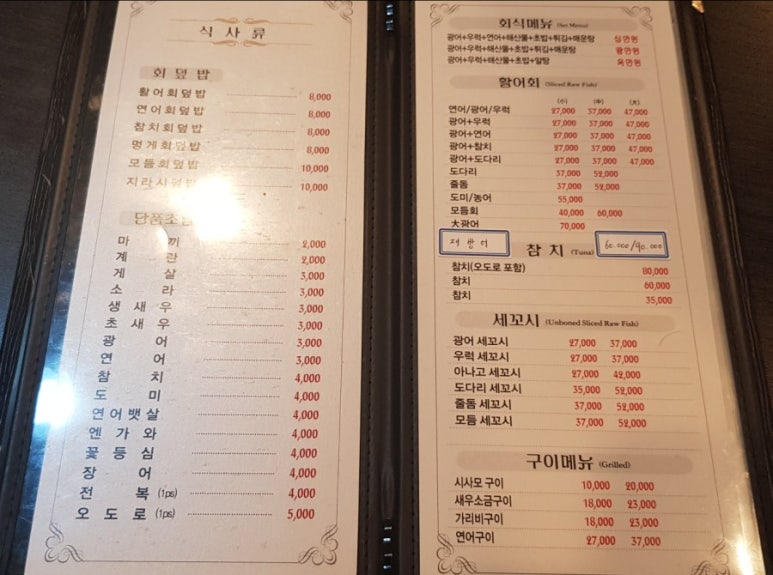 식사류
회덮밥
활어회덮밥 8,000
연어회덮밥 8,000
참치회덮밥 8,000
멍게회덮밥 8,000
모듬회덮밥 10,000
지라시덮밥 10,000
단품초밥
마끼 2,000
계란 2,000
게살 3,000
소라 3,000
생새우 3,000
초새우 3,000
광어 3,000
연어 3,000
참치 4,000
도미 4,000
연어뱃살 4,000
엔가와 4,000
꽃등심 4,000
장어 4,000
전복 (1ps) 4,000
오도로 (1ps) 5,000
회식메뉴 (Set Menu)
광어+우럭+연어+해산물+초밥+튀김+매운탕 십만원
광어+우럭+해산물+초밥+튀김+매운탕 팔만원
광어+우럭+해산물+초밥+알탕 육만원
활어회 (Sliced Raw Fish)
(小) (中) (大)
연어/광어/우럭 27,000 37,000 47,000
광어+우럭 27,000 37,000 47,000
광어+연어 27,000 37,000 47,000
광어+참치 27,000 37,000 47,000
광어+도다리 27,000 37,000 47,000
도다리 37,000 52,000
줄돔 37,000 52,000
도미/농어 55,000
모듬회 40,000 60,000
大광어 70,000
대방어 60.000/90.000
참치 (Tuna)
참치(오도로 포함) 80,000
참치 60,000
참치 35,000
세꼬시 (Unboned Sliced Raw Fish)
광어 세꼬시 27,000 37,000
우럭 세꼬시 27,000 37,000
아나고 세꼬시 27,000 42,000
도다리 세꼬시 35,000 52,000
줄돔 세꼬시 37,000 52,000
모듬 세꼬시 37,000 52,000
구이메뉴 (Grilled)
시사모 구이 10,000 20,000
새우소금구이 18,000 23,000
가리비구이 18,000 23,000
연어구이 27,000 37,000